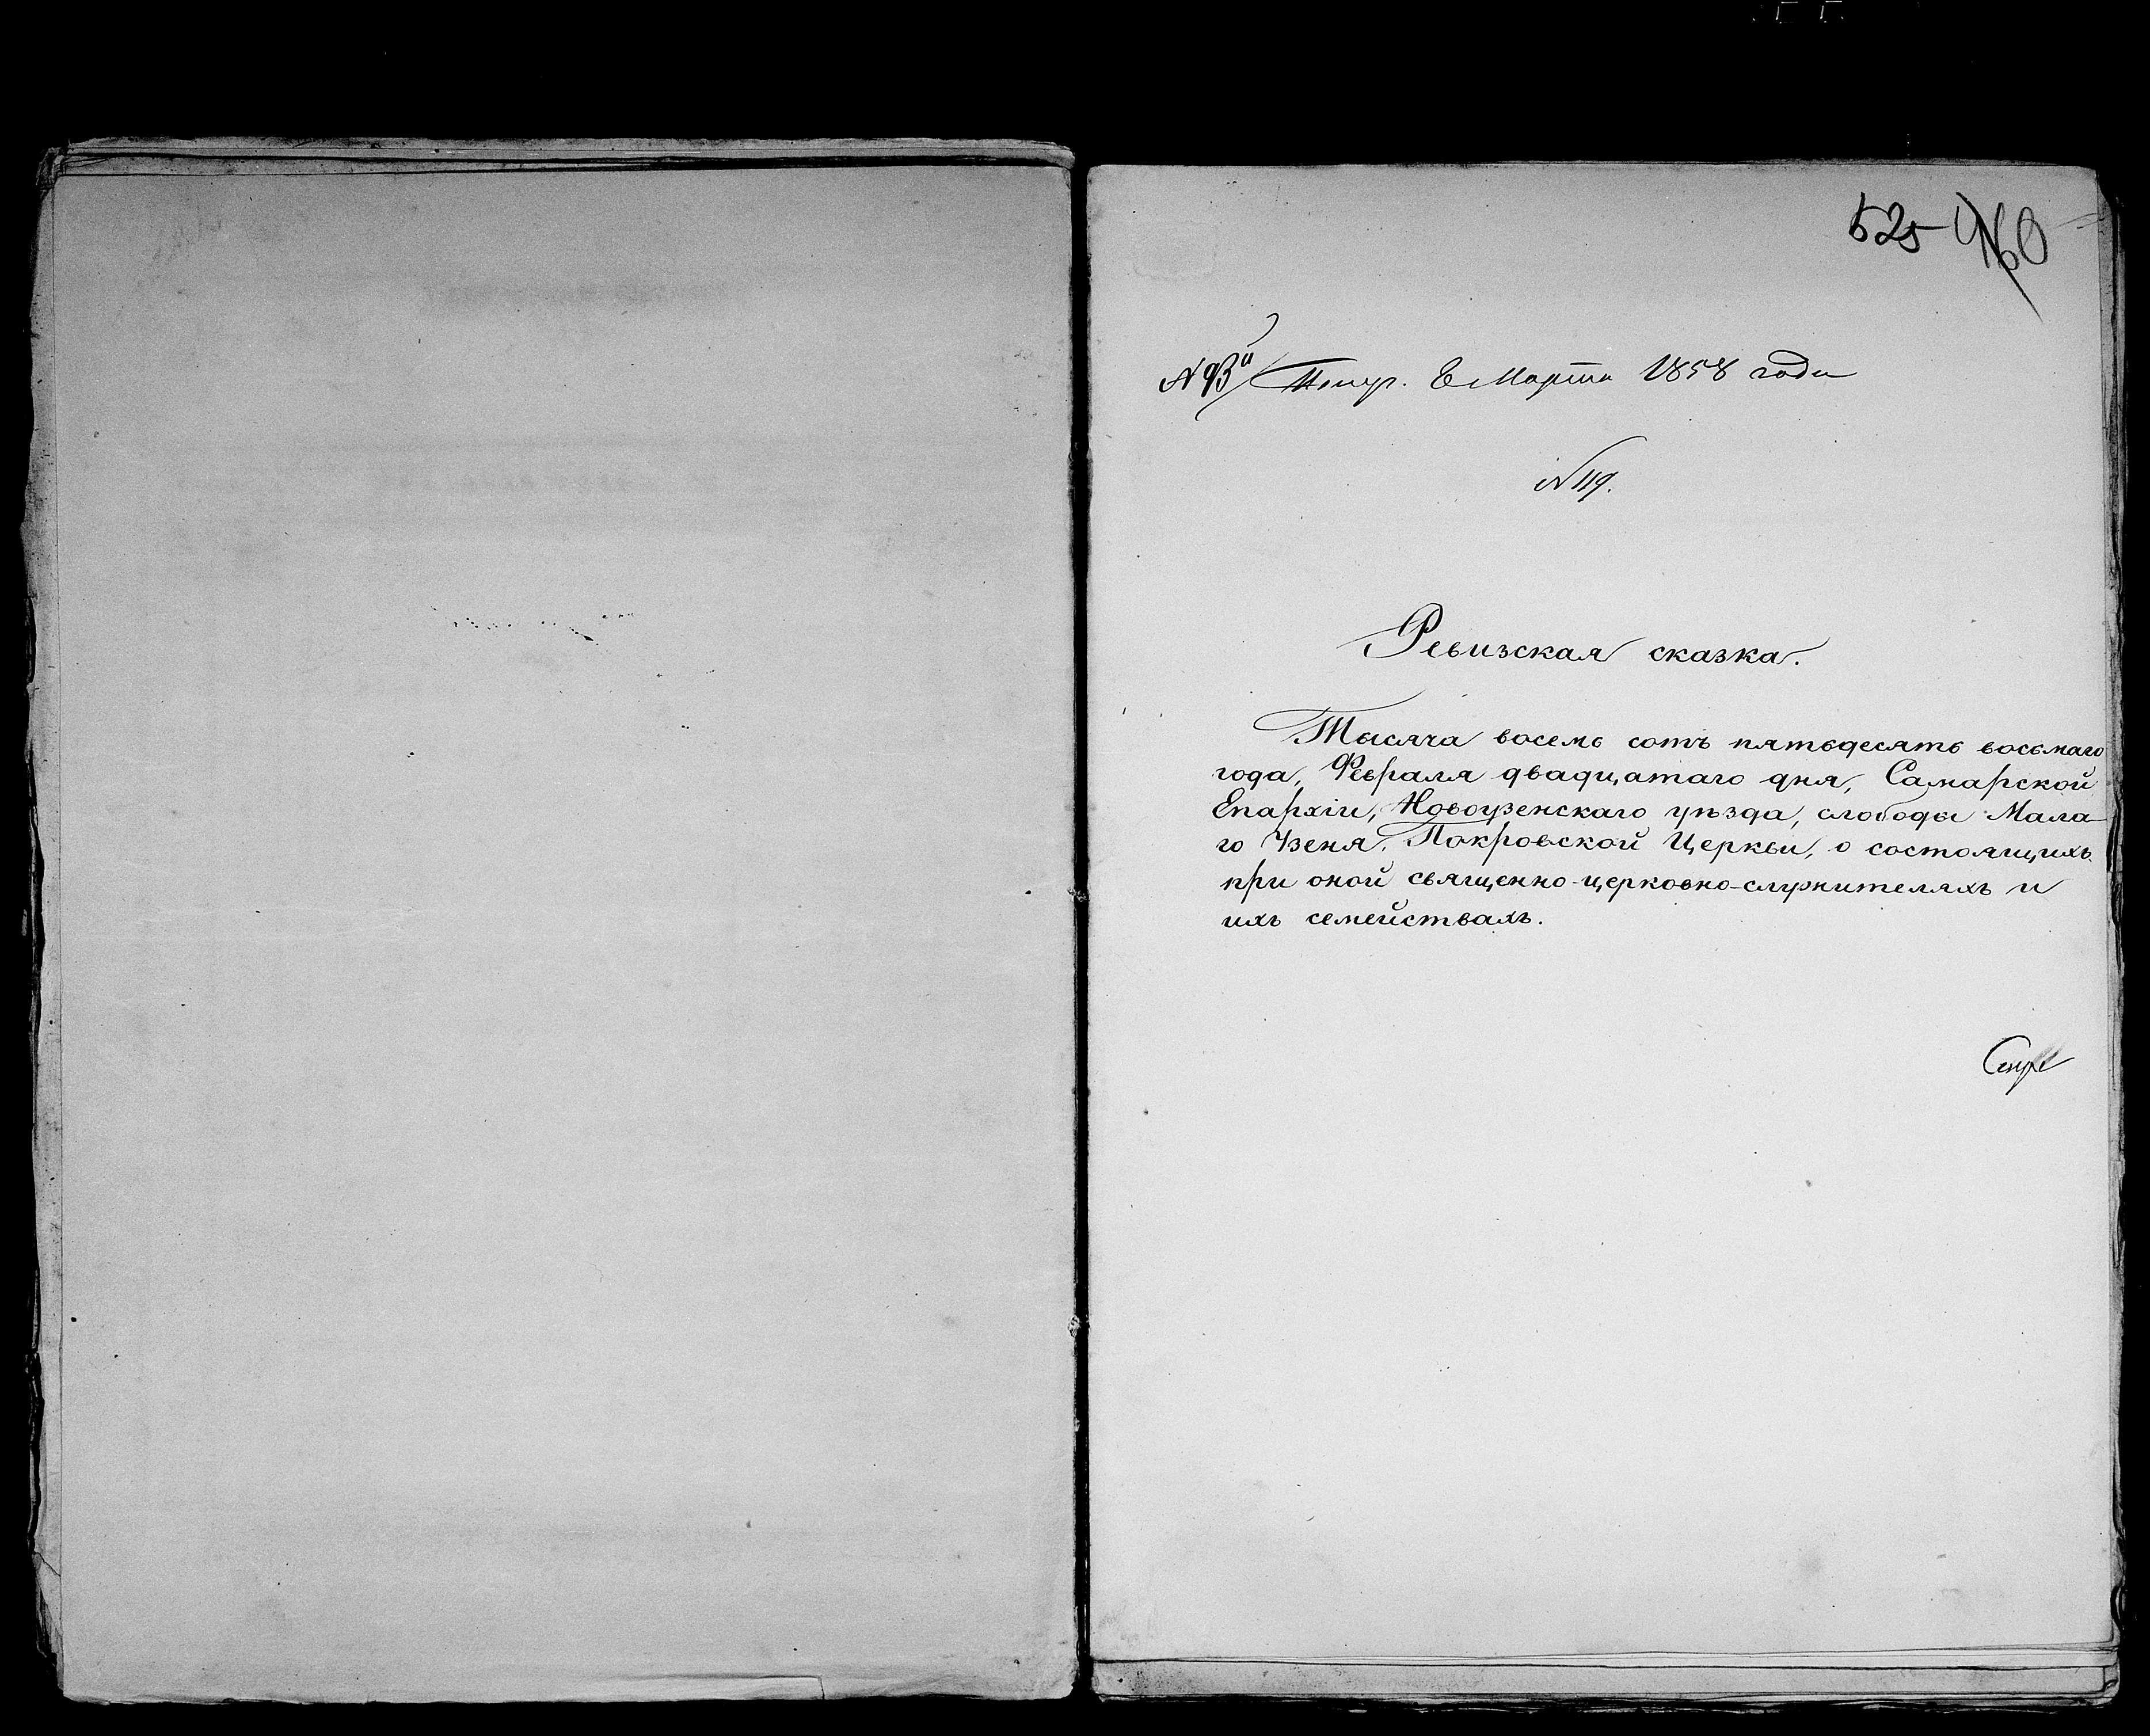 525
№ 93й Получ. 8 Марта 1858 года
№ 119.
Ревизская сказка.
Тысяча восемь сотъ пятьдесятъ восьмаго
года, Февраля двадцатаго дня, Самарской
Епархіи, Новоузенскаго уѣзда, слободы Мала-
го Узеня, Покровской Церкви, о состоящихъ
при оной священно-церковно-служителяхъ и
ихъ семействахъ.